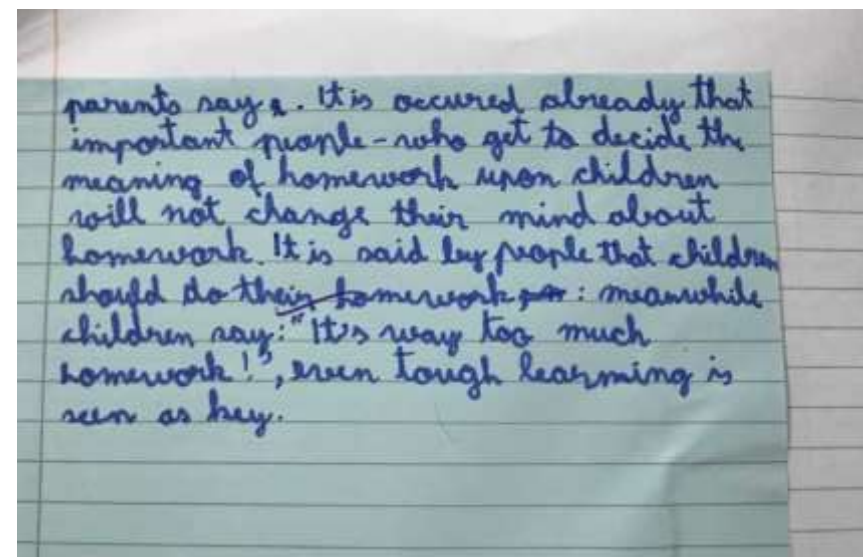 parents say. It is occured already that
important people - who get to decide the
meaning of homework upon children
will not change their mind about
homework. It is said by people that children
should do their homework : meanwhile
children say: "It's way too much
homework!", even tough learning is
seen as key.